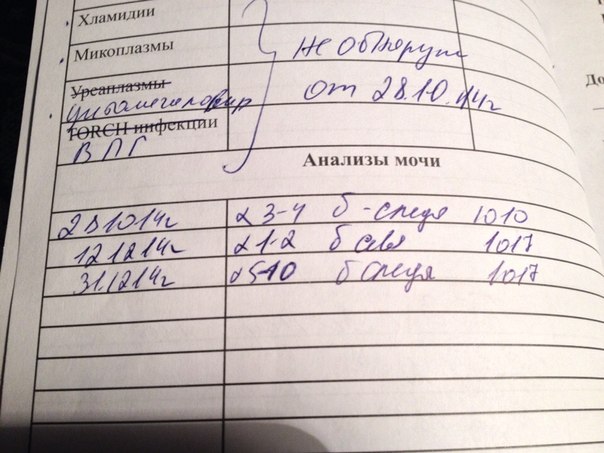 Хламидии
Микоплазмы
не обнаруж
Уреаплазмы
от 28.10.14г
До
TORCH инфекции
ВПГ
Анализы мочи
28.10.14г α 3-4 б-следы 1010
12.12.14г α 1-2 б 1017
31.12.14г α 5-10 б следы 1017